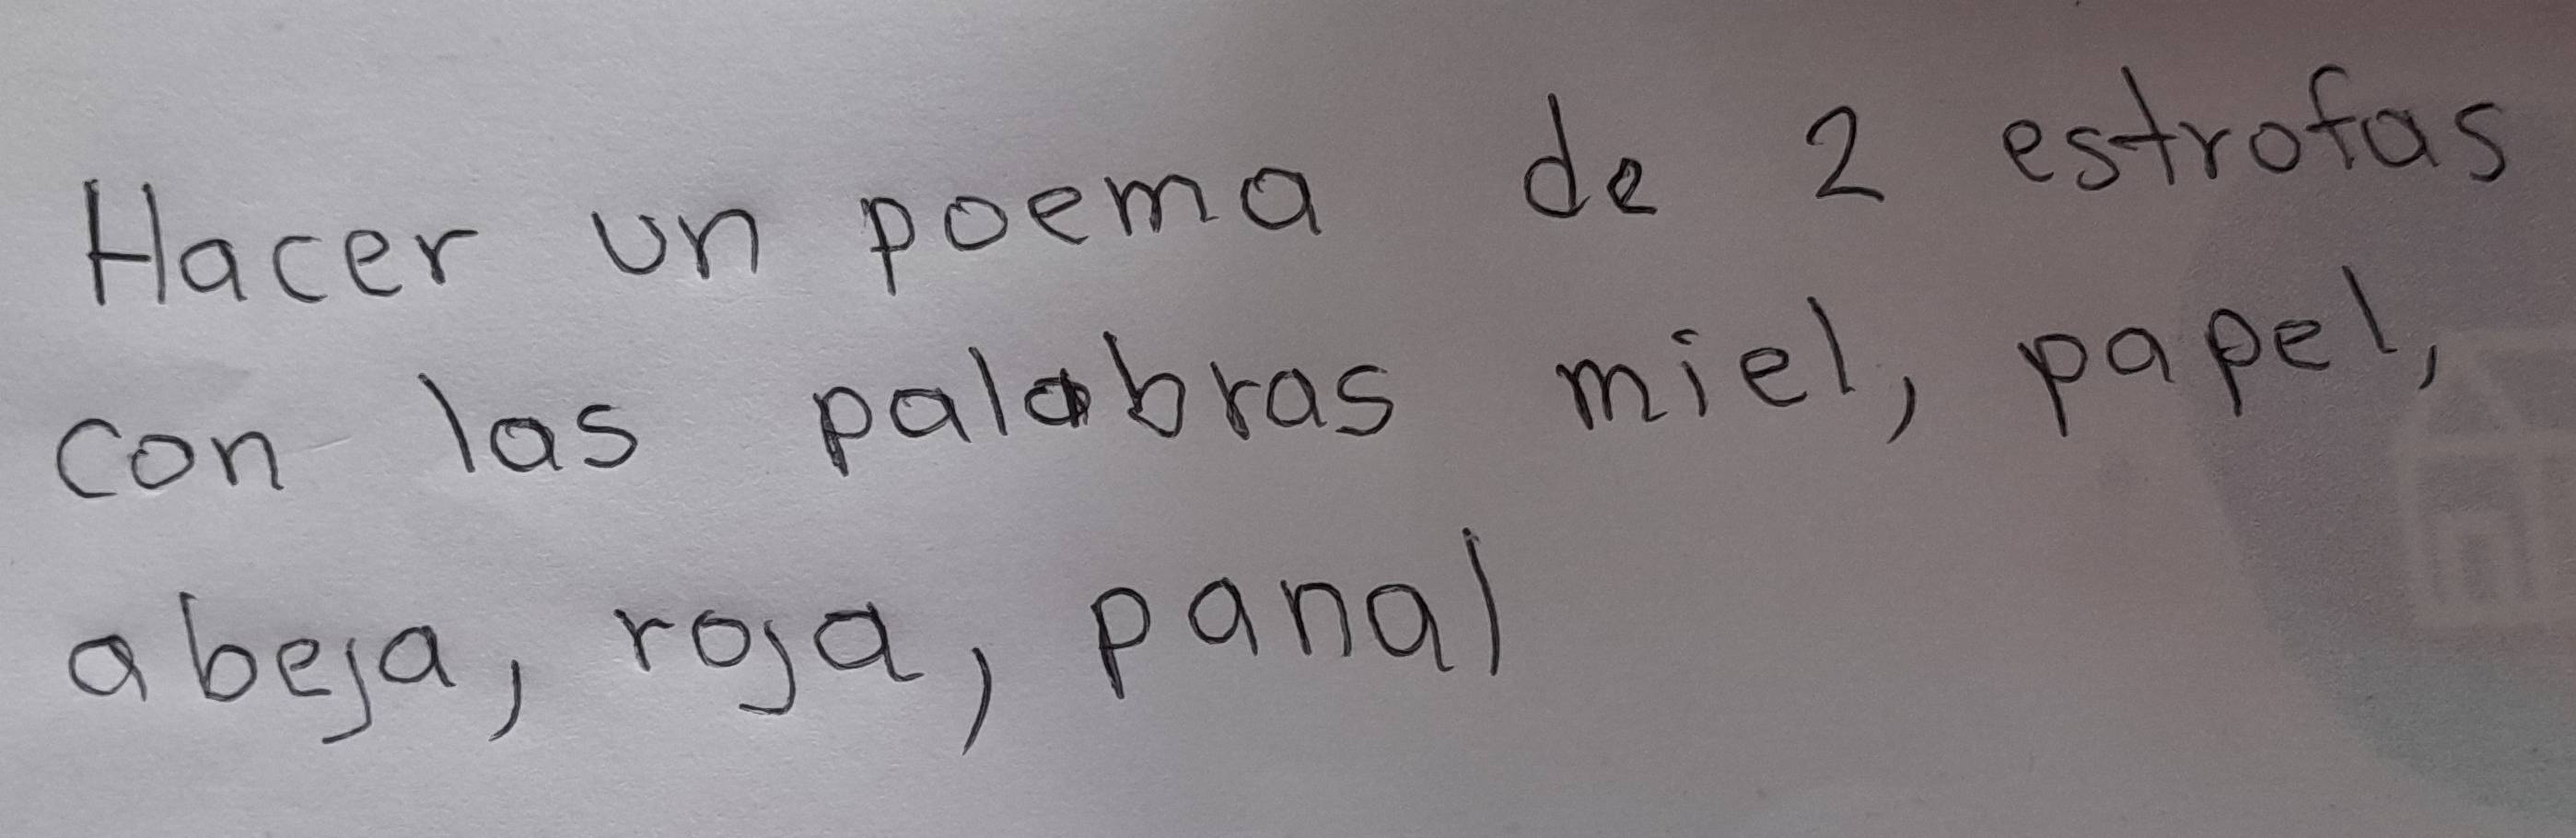 Hacer un poema de 2 estrofas
con las palabras miel, papel,
abeja, roja, panal